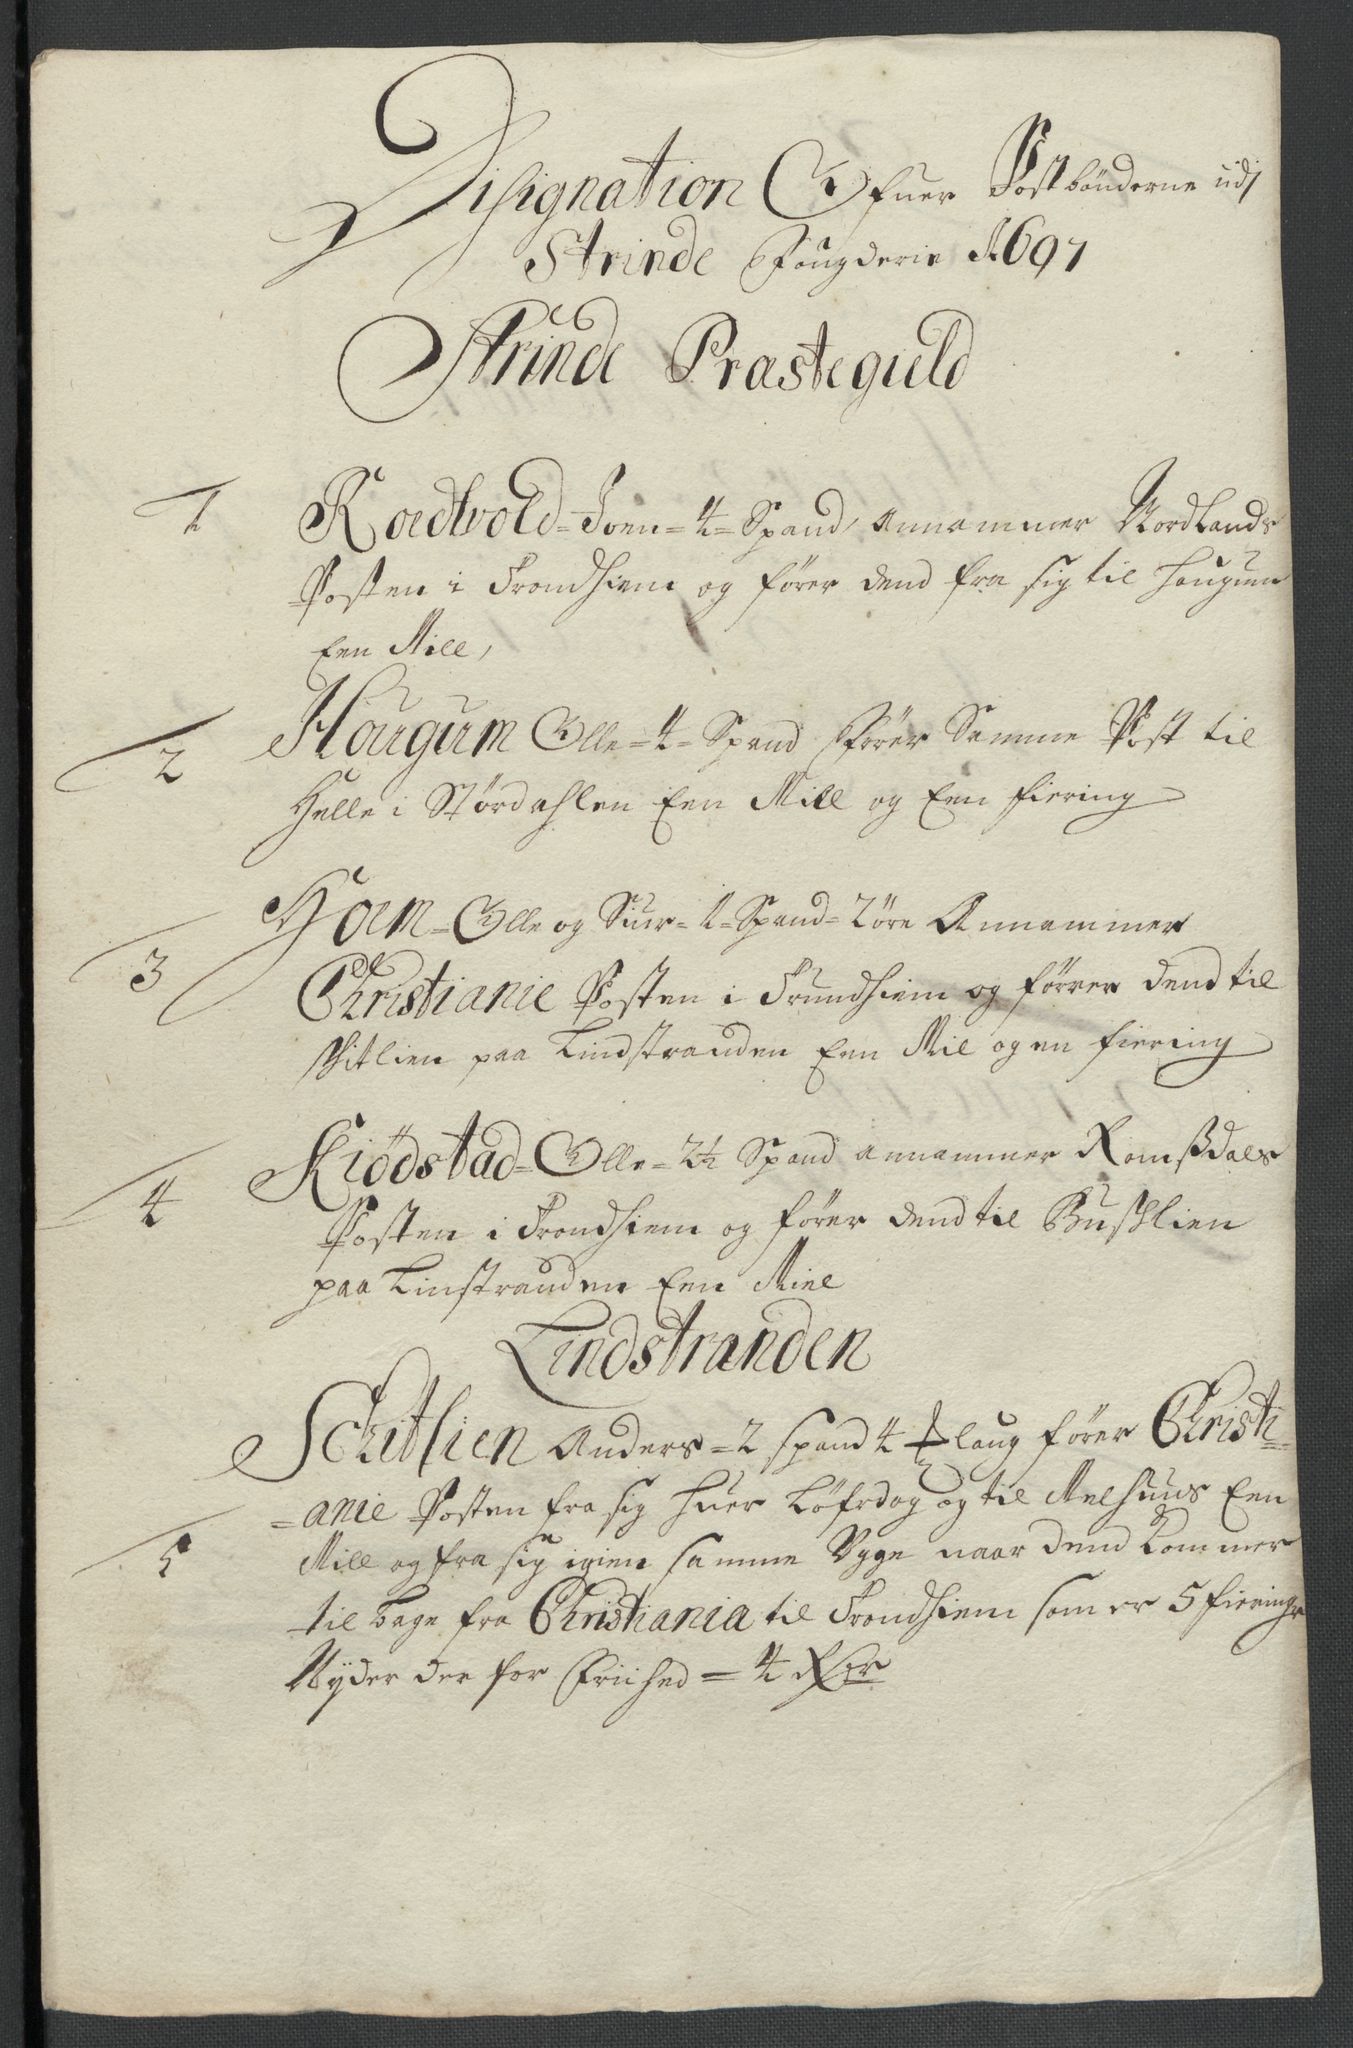 Disignation Ofuer Postbönderne udj
Strinde Fougderie 1697
Strinde Præstegield
1 Roedtvold = Joen = 4 = Spand, annammer Nordlands
Posten i Trondhiem og förer dend fra sig til Hougum
Een Mill,
2 Hougum Olle = 4 = Spand förer Samme Post til
Helle i Stördahlen Een Mill og Een fiering
3 Hoem = Olle og Siur = 1 = Spand = 2 öre Annammer
Christianie Posten i Trundhiem og förrer dend til
Schitlien paa Lindstranden Een Mil og en fiering
4 Kiödstad = Olle = 2½ Spand annammer Romsdals
Posten i Trondhiem og förer dend til Buschlien
paa Linstranden Een Miil
Lindstranden
Schitlien Anders = 2 spand 4 ½ laug förer Christi=
=anie Posten fra sig huer Löfrdag og til Melhuus Een
5 Mill og fra sig igien samme Uge naar dend kommer
til bage fra Christiania til Trondhiem som er 5 fieringr
Nyder der for Friihed = 4 Rdr